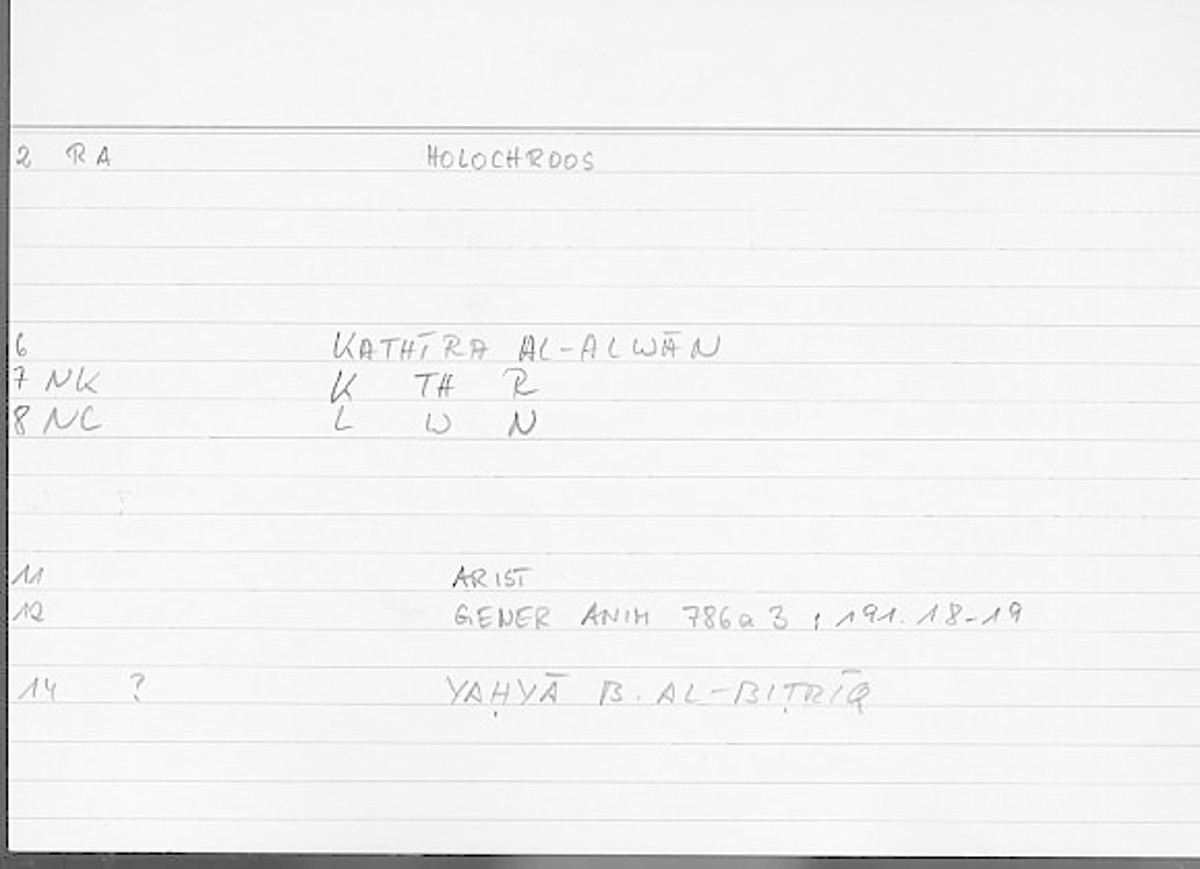 2 RA HOLOCHROOS
6 KATHĪRA AL-ALWĀN
7 NK K TH R
8 NC L W N
11 ARIST
12 GENER ANIM 786a 3 ; 191.18-19
14 ? YAḤYĀ B. AL-BIṬRĪQ